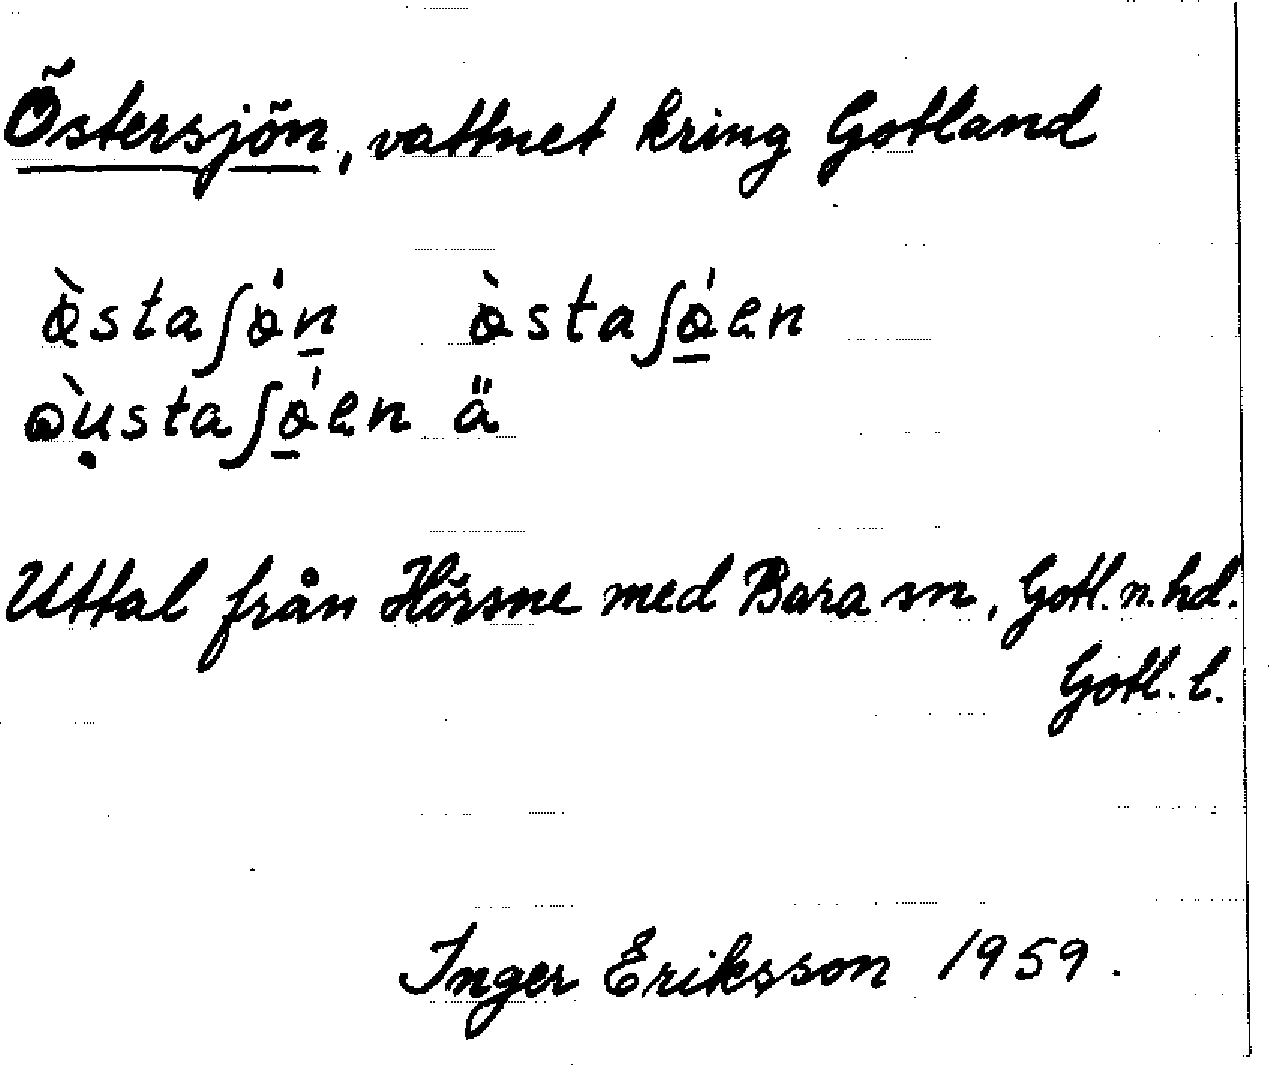 Östersjön, vattnet kring Gotland
ö̀staʃö́n ö̀staʃö́en
öùstaʃö́en ä
Uttal från Hörsne med Bara sn, Gotl. n. hd.
Gotl. l.
Inger Eriksson 1959.